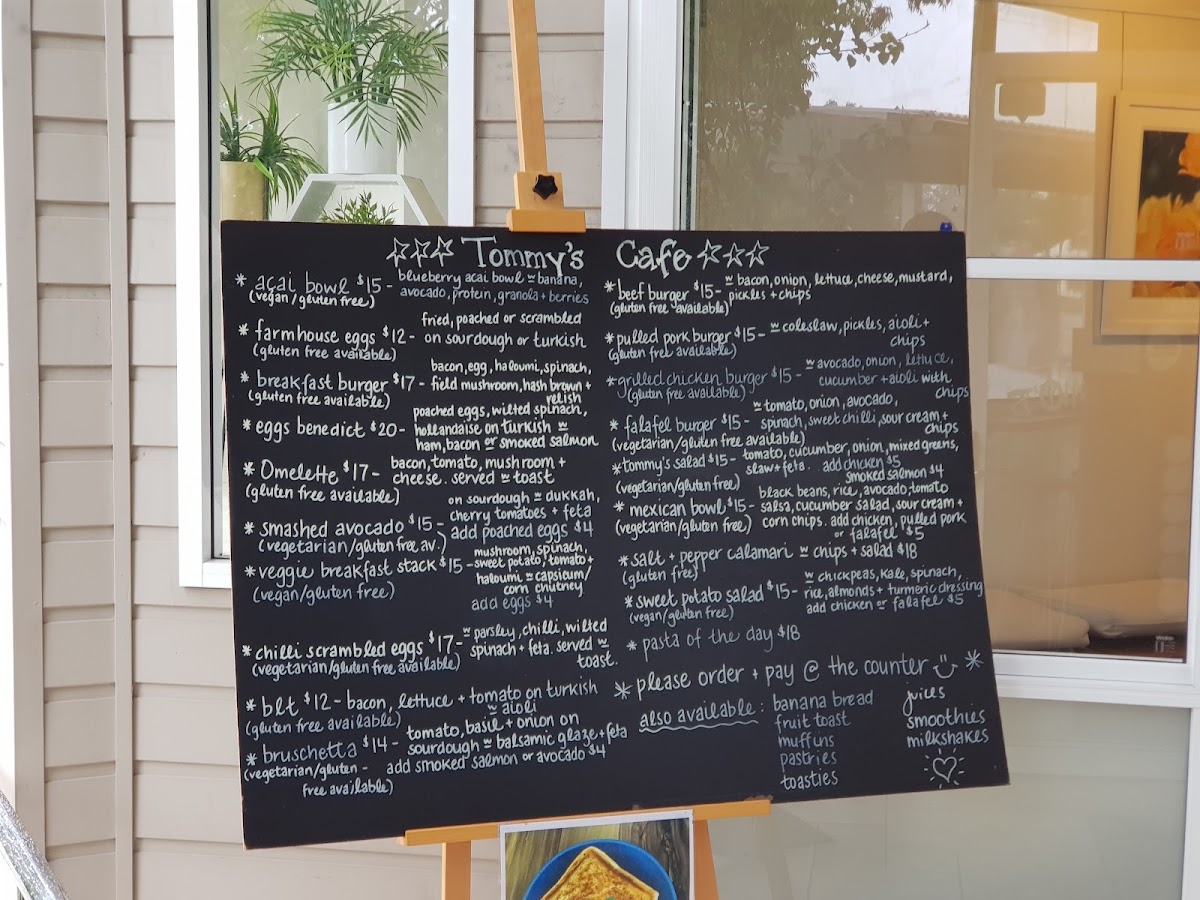 Tommy's Cafe
* açai bowl $15 - blueberry acai bowl w banana,
(vegan/gluten free) avocado, protein, granola + berries
* farmhouse eggs $12 - fried, poached or scrambled
(gluten free available) on sourdough or turkish
* breakfast burger $17 - bacon, egg, haloumi, spinach,
(gluten free available) field mushroom, hash brown +
relish
* eggs benedict $20 - poached eggs, wilted spinach,
hollandaise on turkish w
ham, bacon or smoked salmon
* Omelette $17 - bacon, tomato, mushroom +
(gluten free available) cheese. served w toast
* smashed avocado $15 - on sourdough w dukkah,
cherry tomatoes + feta
(vegetarian/gluten free av.) add poached eggs $4
* veggie breakfast stack $15 - mushroom, spinach,
sweet potato, tomato +
(vegan/gluten free) haloumi w capsicum/
corn chutney
add eggs $4
* chilli scrambled eggs $17 - w parsley, chilli, wilted
(vegetarian/gluten free available) spinach + feta. served w
toast.
* blt $12 - bacon, lettuce + tomato on turkish
(gluten free available) w aioli
* bruschetta $14 - tomato, basil + onion on
sourdough w balsamic glaze + feta
(vegetarian/gluten - add smoked salmon or avocado $4
free available)
* beef burger $15 - w bacon, onion, lettuce, cheese, mustard,
(gluten free available) pickles + chips
* pulled pork burger $15 - w coleslaw, pickles, aioli +
(gluten free available) chips
* grilled chicken burger $15 - w avocado, onion, lettuce,
(gluten free available) cucumber + aioli with
chips
* falafel burger $15 - w tomato, onion, avocado,
spinach, sweet chilli, sour cream +
(vegetarian/gluten free available) chips
* tommy's salad $15 - tomato, cucumber, onion, mixed greens,
slaw + feta. add chicken $5
(vegetarian/gluten free) smoked salmon $4
* mexican bowl $15 - black beans, rice, avocado, tomato
salsa, cucumber salad, sour cream +
(vegetarian/gluten free) corn chips. add chicken, pulled pork
or falafel $5
* salt + pepper calamari w chips + salad $18
(gluten free)
* sweet potato salad $15 - w chickpeas, kale, spinach,
rice, almonds + turmeric dressing
(vegan/gluten free) add chicken or falafel $5
* pasta of the day $18
* please order + pay @ the counter *
also available: banana bread
fruit toast
muffins
pastries
toasties
juices
smoothies
milkshakes